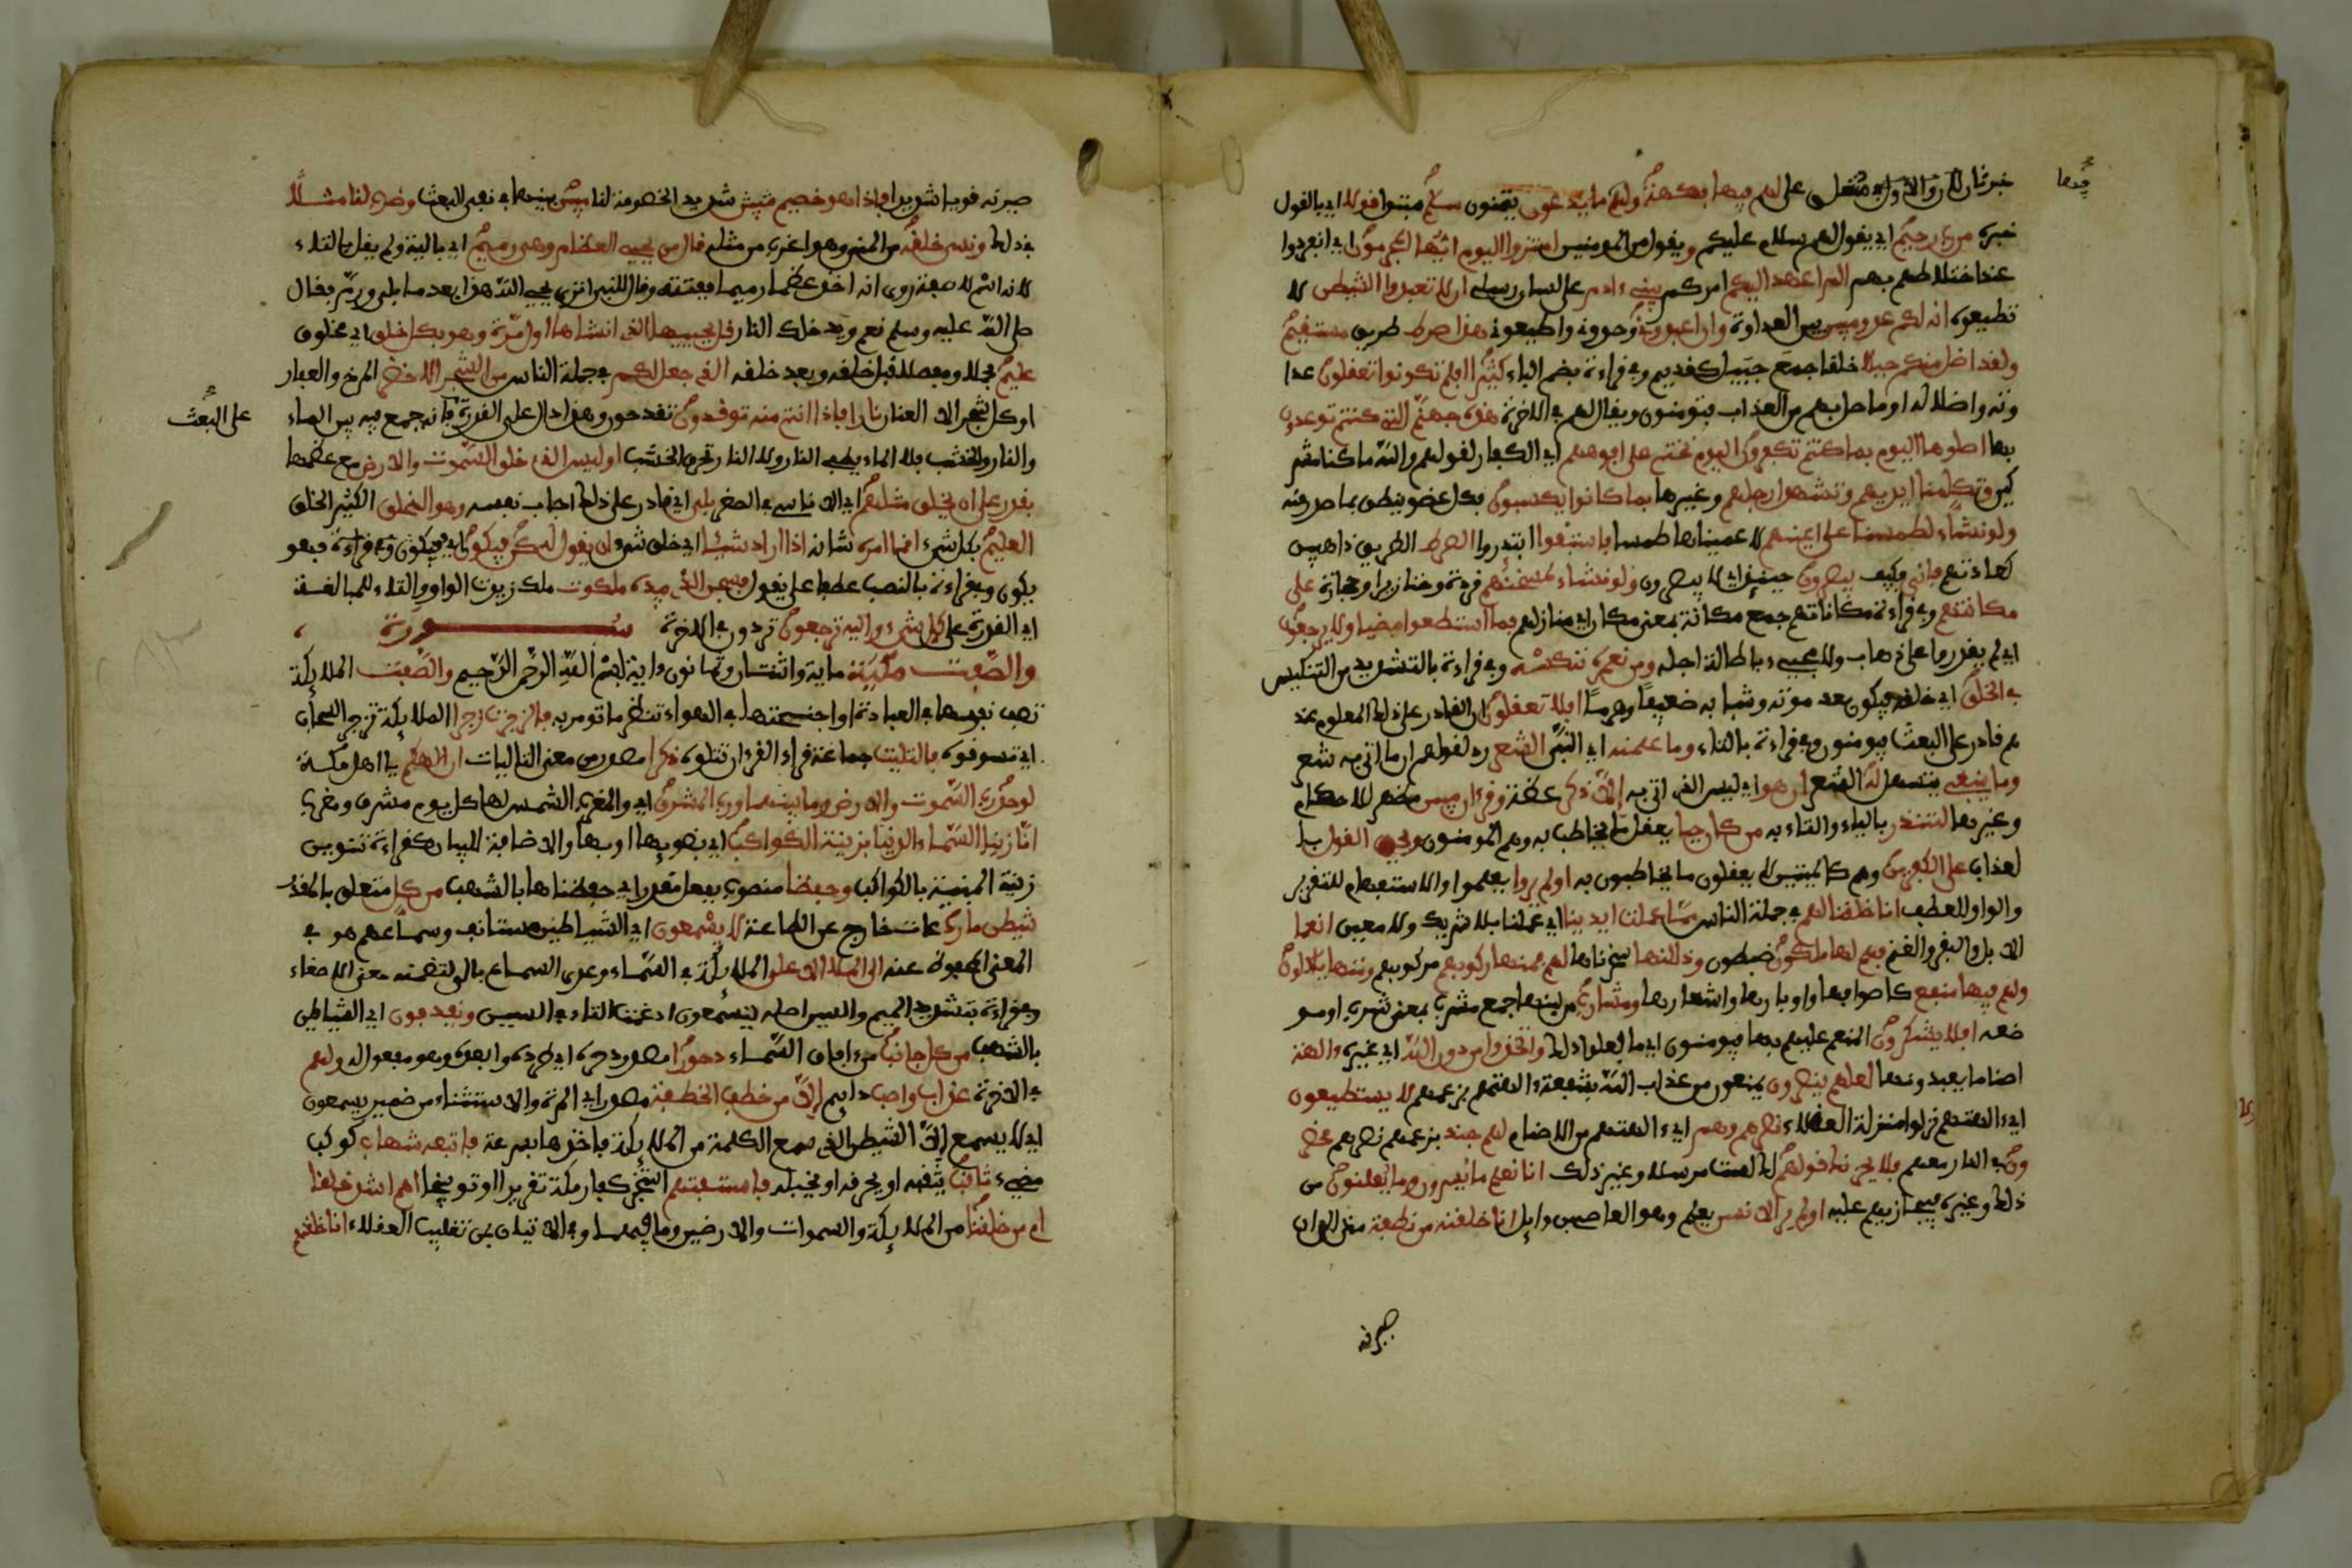 فيها
خبر ثان للاول او متعلق على لهم فيها فكهة ولهم ما يدعون يتمنون سلم مبتدا قولا اي بالقول
خبره من رب رحيم اي يقول لهم سلام عليكم و يقول من المومنين امتزوا اليوم ايها المجرمون اي انفردوا
عند اختلاطهم بهم الم اعهد اليكم امركم يبني ءادم على لسان رسلي ان لا تعبدوا الشيطن لا
تطيعوه انه لكم عدو مبين بين العداوة وان اعبدوني وحدوني واطيعوني هذا صرط طريق مستقيم
ولقد اضل منكم جبلا خلقا جمع جبيل كقديم وفي قراءة بضم الباء كثيرا افلم تكونوا تعقلون عدا
وته واضلاله او ما حل بهم من العذاب فتومنون ويقال لهم في الاخرة هذه جهنم التي كنتم توعدون
بها اصلوها اليوم بما كنتم تكفرون اليوم نختم على افوههم اي الكفار لقولهم والله ما كنا مشر
كين وتكلمنا ايديهم وتشهد ارجلهم وغيرها بما كانوا يكسبون فكل عضو ينطق بما صدر منه
ولو نشاء لطمسنا على اعينهم لاعميناها طمسا فاستبقوا ابتدروا الصرط الطريق ذاهبين
كعادتهم فانى فكيف يبصرون حينئذ اي لا يبصرون ولو نشاء لمسخنهم قردة وخنازير او حجارة على
مكانتهم وفي قراءة مكاناتهم جمع مكانة بمعنى مكان اي منازلهم فما استطعوا مضيا ولا يرجعون
اي لم يقدروا على ذهاب ولا مجيء باطالة اجله ومن نعمره ننكسه وفي قراءة بالتشديد من التنكيس
في الخلق اي خلقه فيكون بعد قوته وشبابه ضعيفا وهرما افلا تعقلون ان القادر على ذلك المعلوم عند
هم قادر على البعث فيومنون وفي قراءة بالتاء وما علمنه اي النبي الشعر رد لقولهم ان ما اتى به شعر
وما ينبغي يتسهل له الشعر ان هو اي ليس الذي اتى به الا ذكر عظة وقرءان مبين مظهر للاحكام
وغيرها لتنذر بالياء والتاء به من كان حيا يعقل ما يخاطب به وهم المومنون ويحق القول با
لعذاب على الكفرين وهم كالميتين لا يعقلون ما يخاطبون به اولم يروا يعلموا والاستفهام للتقرير
والواو للعطف انا خلقنا لهم في جملة الناس مما عملت ايدينا اي عملنا بلا شريك ولا معين انعما
الابل والبقر والغنم فهم لها ملكون ضبطون وذللنها سخرناها لهم فمنها ركوبهم مركوبهم ومنها ياكلون
ولهم فيها منفع كاصوافها واوبارها واشعارها ومشارب من لبنها جمع مشرب بمعنى شرب او مو
ضعه افلا يشكرون المنعم عليهم بها فيومنون اي ما فعلوا ذلك واتخذوا من دون الله اي غيره ءالهة
اصناما يعبدونها لعلهم ينصرون يمنعون من عذاب الله بشفعة ءالهتهم بزعمهم لا يستطيعون
اي ءالهتهم نزلوا منزلة العقلاء نصرهم وهم اي ءالهتهم من الاصنام لهم جند بزعمهم نصرهم محضر
ون في النار معهم فلا يحزنك قولهم لك لست مرسلا وغير ذلك انا نعلم ما يسرون وما يعلنون من
ذلك وغيره فيجازيهم عليه اولم ير الانسن يعلم وهو العاصي بن وايل انا خلقنه من نطفة مني الى ان
صيرنه
صيرنه قويا شديدا فاذا هو خصيم مبين شديد الخصومة لنا مبين بينها في نفي البعث وضرب لنا مثلا
في ذلك ونسي خلقه من المني وهو اغرب من مثله قال من يحيي العظام وهي رميم اي بالية ولم يقل بالتاء
لانه اسم لا صفة روي انه اخذ عظما رميما ففتته وقال للنبي اترى يحيي الله هذا بعد ما بلي ورم فقال
صلى الله عليه وسلم نعم ويدخلك النار قل يحييها الذي انشاها اول مرة وهو بكل خلق اي مخلوق
عليم مجملا ومفصلا قبل خلقه وبعد خلقه الذي جعل لكم في جملة الناس من الشجر الاخضر المرخ والعفار
او كل شجر الا العناب نارا فاذا انتم منه توقدون تقدحون وهذا دال على القدرة فانه جمع فيه بين الماء
على البعث
والنار والخشب فلا الماء يطفي النار ولا النار تحرق الخشب اوليس الذي خلق السموت والارض مع عظمها
بقدر على ان يخلق مثلهم اي الاناسي في الصغر بلى اي قادر على ذلك اجاب نفسه وهو الخلق الكثير الخلق
العليم بكل شيء انما امره شانه اذا اراد شيئا اي خلق شيء ان يقول له كن فيكون اي فيكون وفي قراءة فهو
يكون وفي قراءة بالنصب عطفا على يقول فسبحن الذي بيده ملكوت ملك زيدت الواو والتاء للمبالغة
اي القدرة على كل شيء واليه ترجعون تردون في الاخرة سورة
والصفت مكية ماية واثنتان وثمانون ءاية بسم الله الرحمن الرحيم والصفت الملايكة
تصف نفوسها في العبادة او اجنحتها في الهواء تنتظر ما تومر به فالزجرت زجرا الملايكة تزجر السحاب
اي تسوقه فالتليت جماعة قراء القرءان تتلوه ذكرا مصدر من معنى التاليات ان الهكم يا اهل مكة
لوحد رب السموت والارض وما بينهما ورب المشرق اي والمغرب الشمس لها كل يوم مشرق ومغرب
انا زينا السماء الدنيا بزينة الكواكب اي بضويها او بها والاضافة للبيان كقراءة تنوين
زينة المبينة بالكواكب وحفظا منصوب بفعل مقدر اي حفظناها بالشهب من كل متعلق بالمقدر
شيطن مارد عات خارج عن الطاعة لا يسمعون اي الشياطين مستانف وسماعهم هو في
المعنى المحفوظ عنه الى الملا الاعلى الملايكة في السماء وعدي السماع بالى لتضمنه معنى الاصغاء
وفي قراءة بتشديد الميم والسين اصله يتسمعون ادغمت التاء في السين ويقذفون اي الشياطين
بالشهب من كل جانب من ءافاق السماء دحورا مصدر دحره اي طرده وابعده وهو مفعول له ولهم
في الاخرة عذاب واصب دايم الا من خطف الخطفة مصدر اي المرة والاستثناء من ضمير يسمعون
اي لا يسمع الا الشيطن الذي سمع الكلمة من الملايكة فاخذها بسرعة فاتبعه شهاب كوكب
مضيء ثاقب يثقبه او يحرقه او يخبله فاستفتهم استخبر كفار مكة تقريرا او توبيخا اهم اشد خلقا
ام من خلقنا من الملايكة والسموات والارضين وما فيهما وفي الاتيان بمن تغليب العقلاء انا خلقنهم